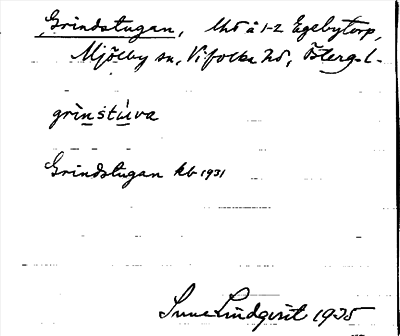 Grindstugan, lht å 1-2 Egebytorp,
Mjölby sn, Vifolka hd, Österg. l.
grinstuva
Grindstugan kb 1931
Sune Lindqvist 1935